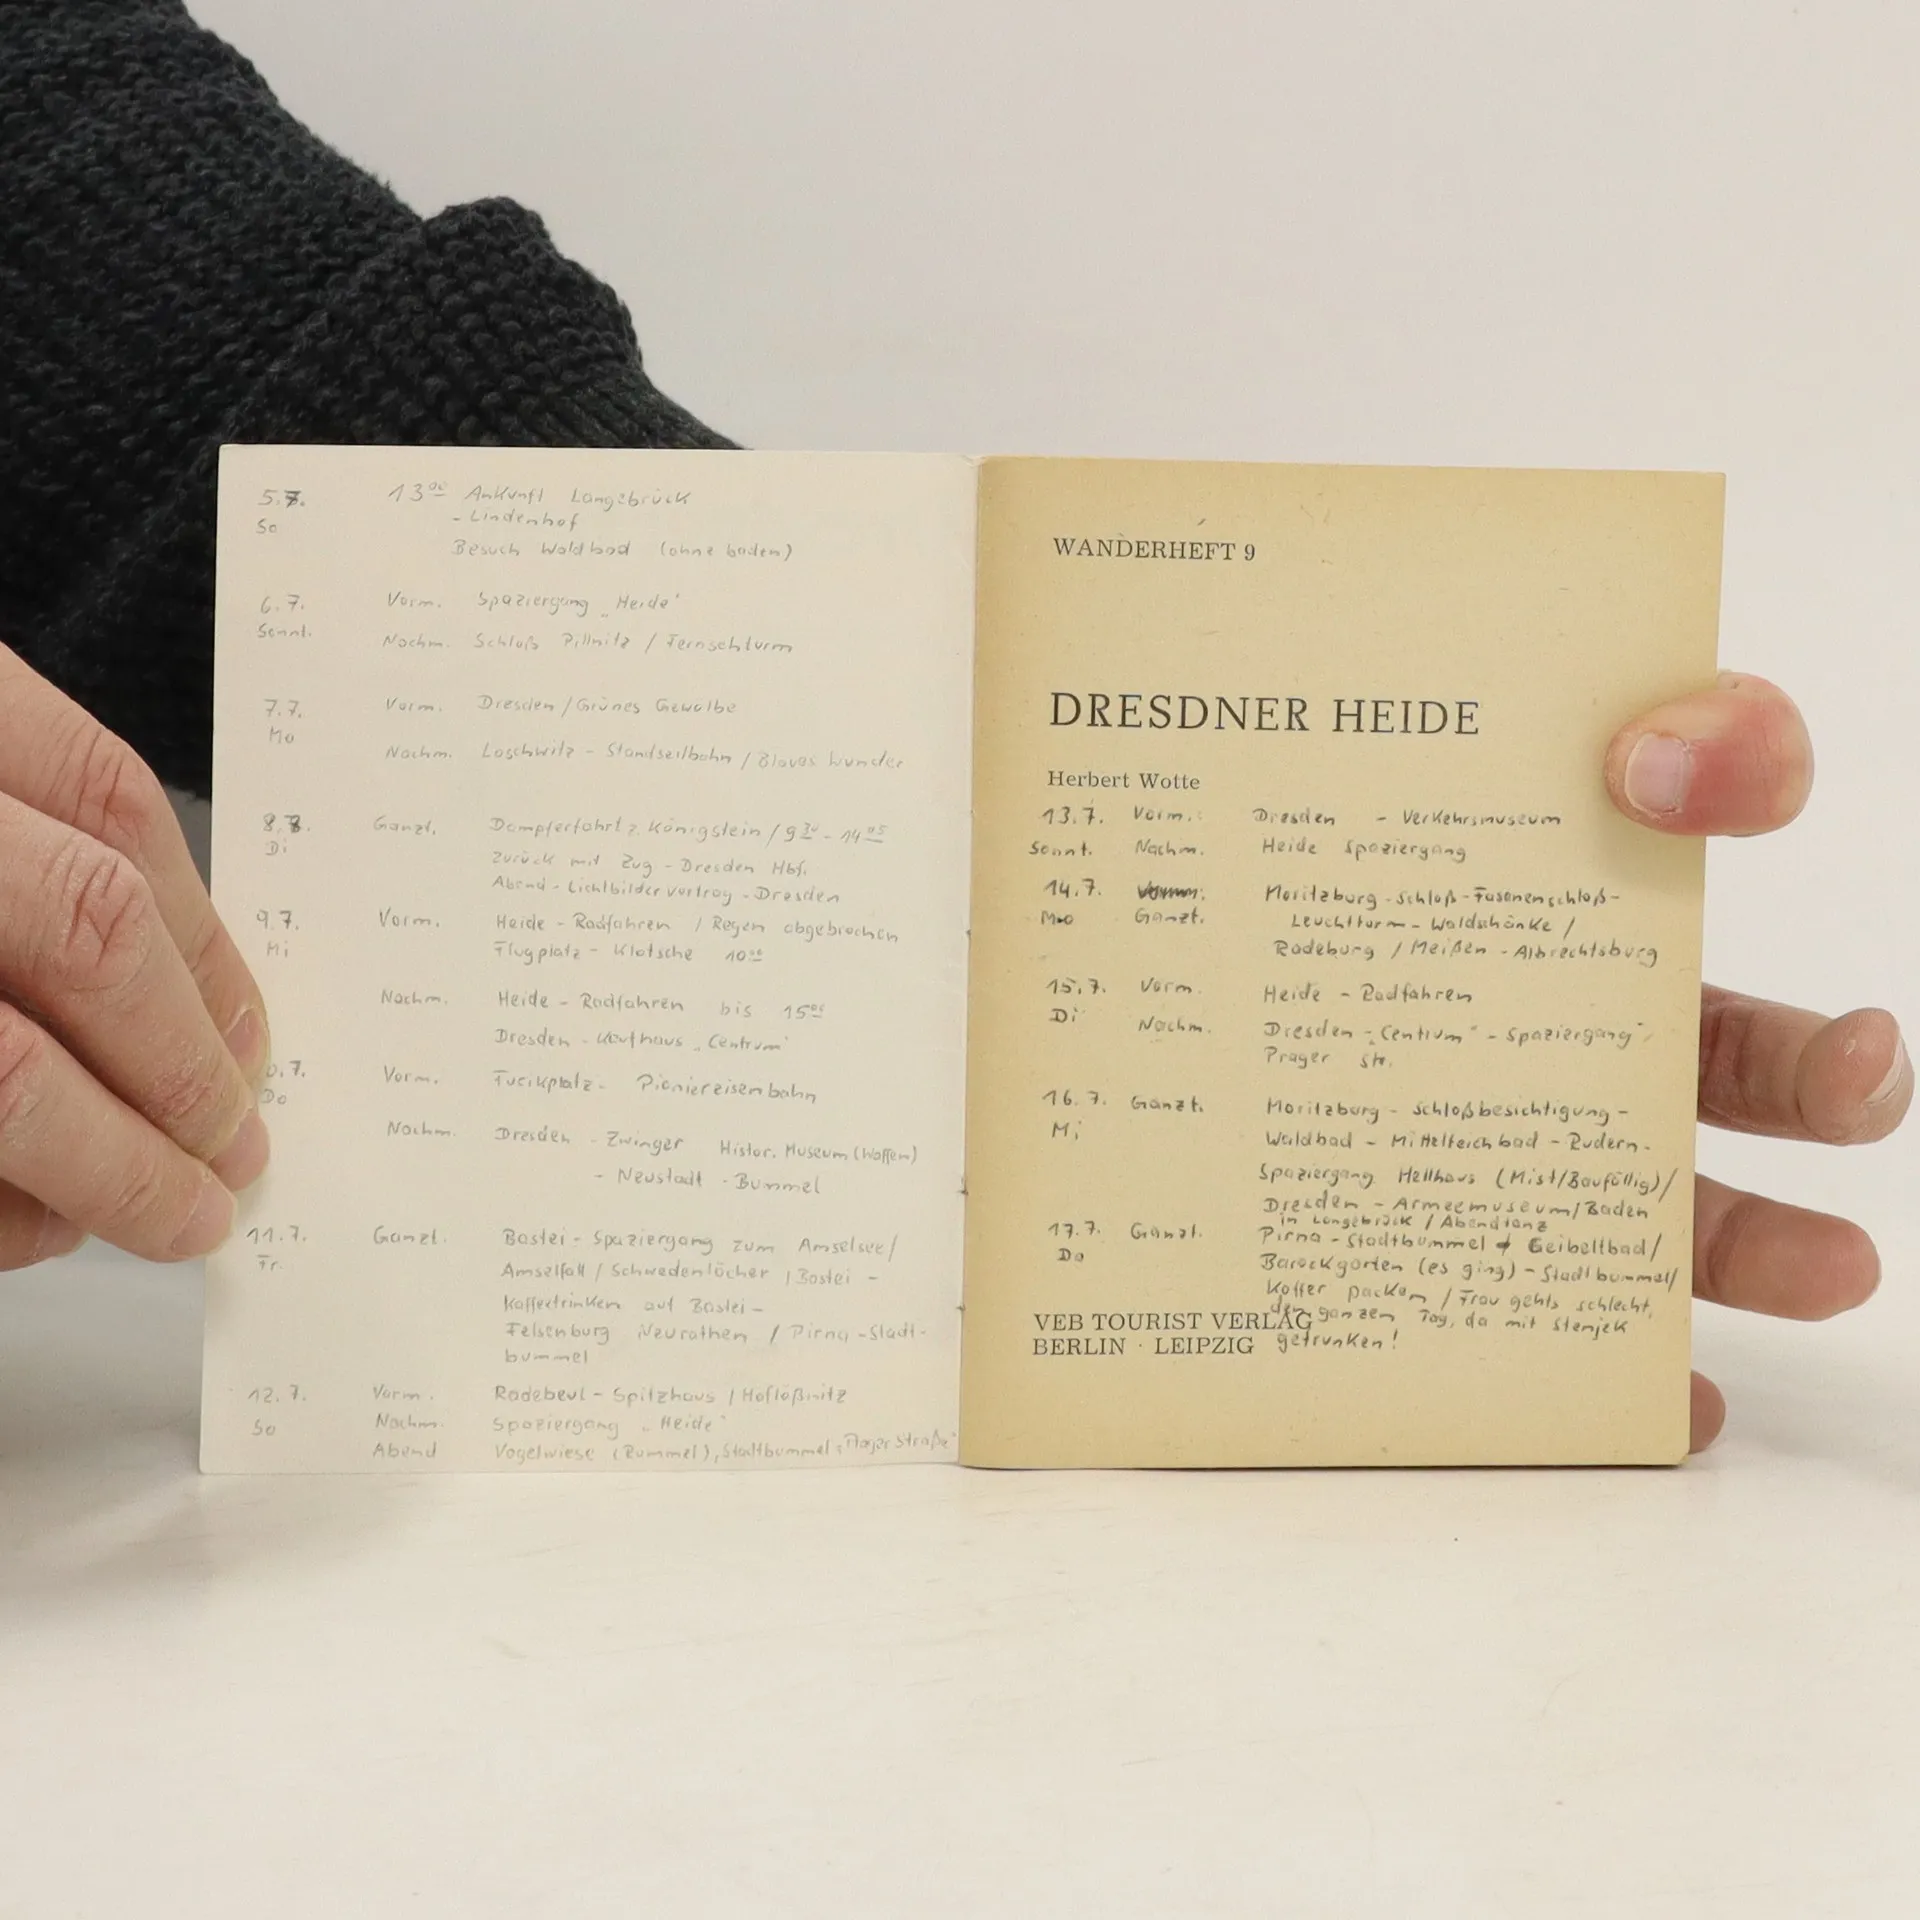 5.7. 13⁰⁰ Ankunft Langebrück
So - Lindenhof
Besuch Waldbad (ohne baden)
6.7. Vorm. Spaziergang „Heide"
Sonnt.
Nachm. Schloß Pillnitz / Fernsehturm
7.7. Vorm. Dresden / Grünes Gewölbe
Mo
Nachm. Loschwitz - Standseilbahn / Blaues Wunder
8.7. Ganzt. Dampferfahrt z. Königstein / 9³⁰ - 14⁰⁵
Di zurück mit Zug - Dresden Hbf.
Abend - Lichtbildervortrag - Dresden
9.7. Vorm. Heide - Radfahren / Regen abgebrochen
Mi Flugplatz - Klotsche 10⁰⁰
Nachm. Heide - Radfahren bis 15⁰⁰
Dresden - Kaufhaus „Centrum"
0.7. Vorm. Fucikplatz - Pioniereisenbahn
Do
Nachm. Dresden - Zwinger Histor. Museum (Waffen)
- Neustadt - Bummel
11.7. Ganzt. Bastei - Spaziergang zum Amselsee /
Fr. Amselfall / Schwedenlöcher / Bastei -
Kaffeetrinken auf Bastei -
Felsenburg Neurathen / Pirna - Stadt-
bummel
12.7. Vorm. Radebeul - Spitzhaus / Hoflößnitz
So Nachm. Spaziergang „Heide"
Abend Vogelwiese (Rummel), Stadtbummel „Prager Straße"
WANDERHEFT 9
DRESDNER HEIDE
Herbert Wotte
13.7. Vorm.: Dresden - Verkehrsmuseum
Sonnt. Nachm. Heide Spaziergang
14.7. Vorm. Moritzburg - Schloß - Fasanenschloß -
Mo Ganzt. Leuchtturm - Waldschänke /
Radeburg / Meißen - Albrechtsburg
15.7. Vorm. Heide - Radfahren
Di Nachm. Dresden - „Centrum" - Spaziergang
Prager Str.
16.7. Ganzt. Moritzburg - Schloßbesichtigung -
Mi Waldbad - Mittelteichbad - Rudern -
Spaziergang Hellhaus (Mist/Baufällig) /
Dresden - Armeemuseum / Baden
in Langebrück / Abendtanz
17.7. Ganzt. Pirna - Stadtbummel + Geibeltbad /
Do Barockgarten (es ging) - Stadtbummel /
Koffer packen / Frau gehts schlecht,
den ganzen Tag, da mit Stenjek
getrunken!
VEB TOURIST VERLAG
BERLIN · LEIPZIG